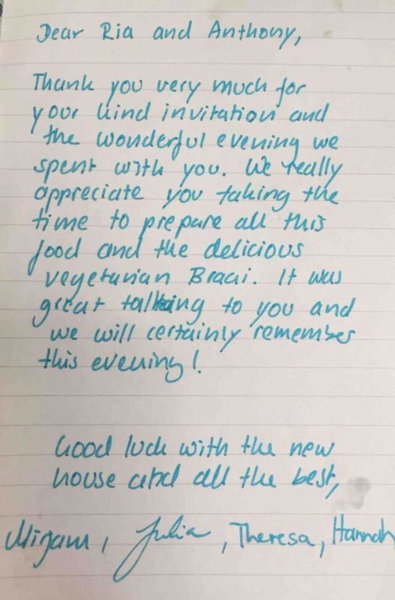 Dear Ria and Anthony,
Thank you very much for
your kind invitation and
the wonderful evening we
spent with you. We really
appreciate you taking the
time to prepare all this
food and the delicious
vegetarian Braai. It was
great talking to you and
we will certainly remember
this evening!
Good luck with the new
house and all the best,
Mirjam, Julia, Theresa, Hannah